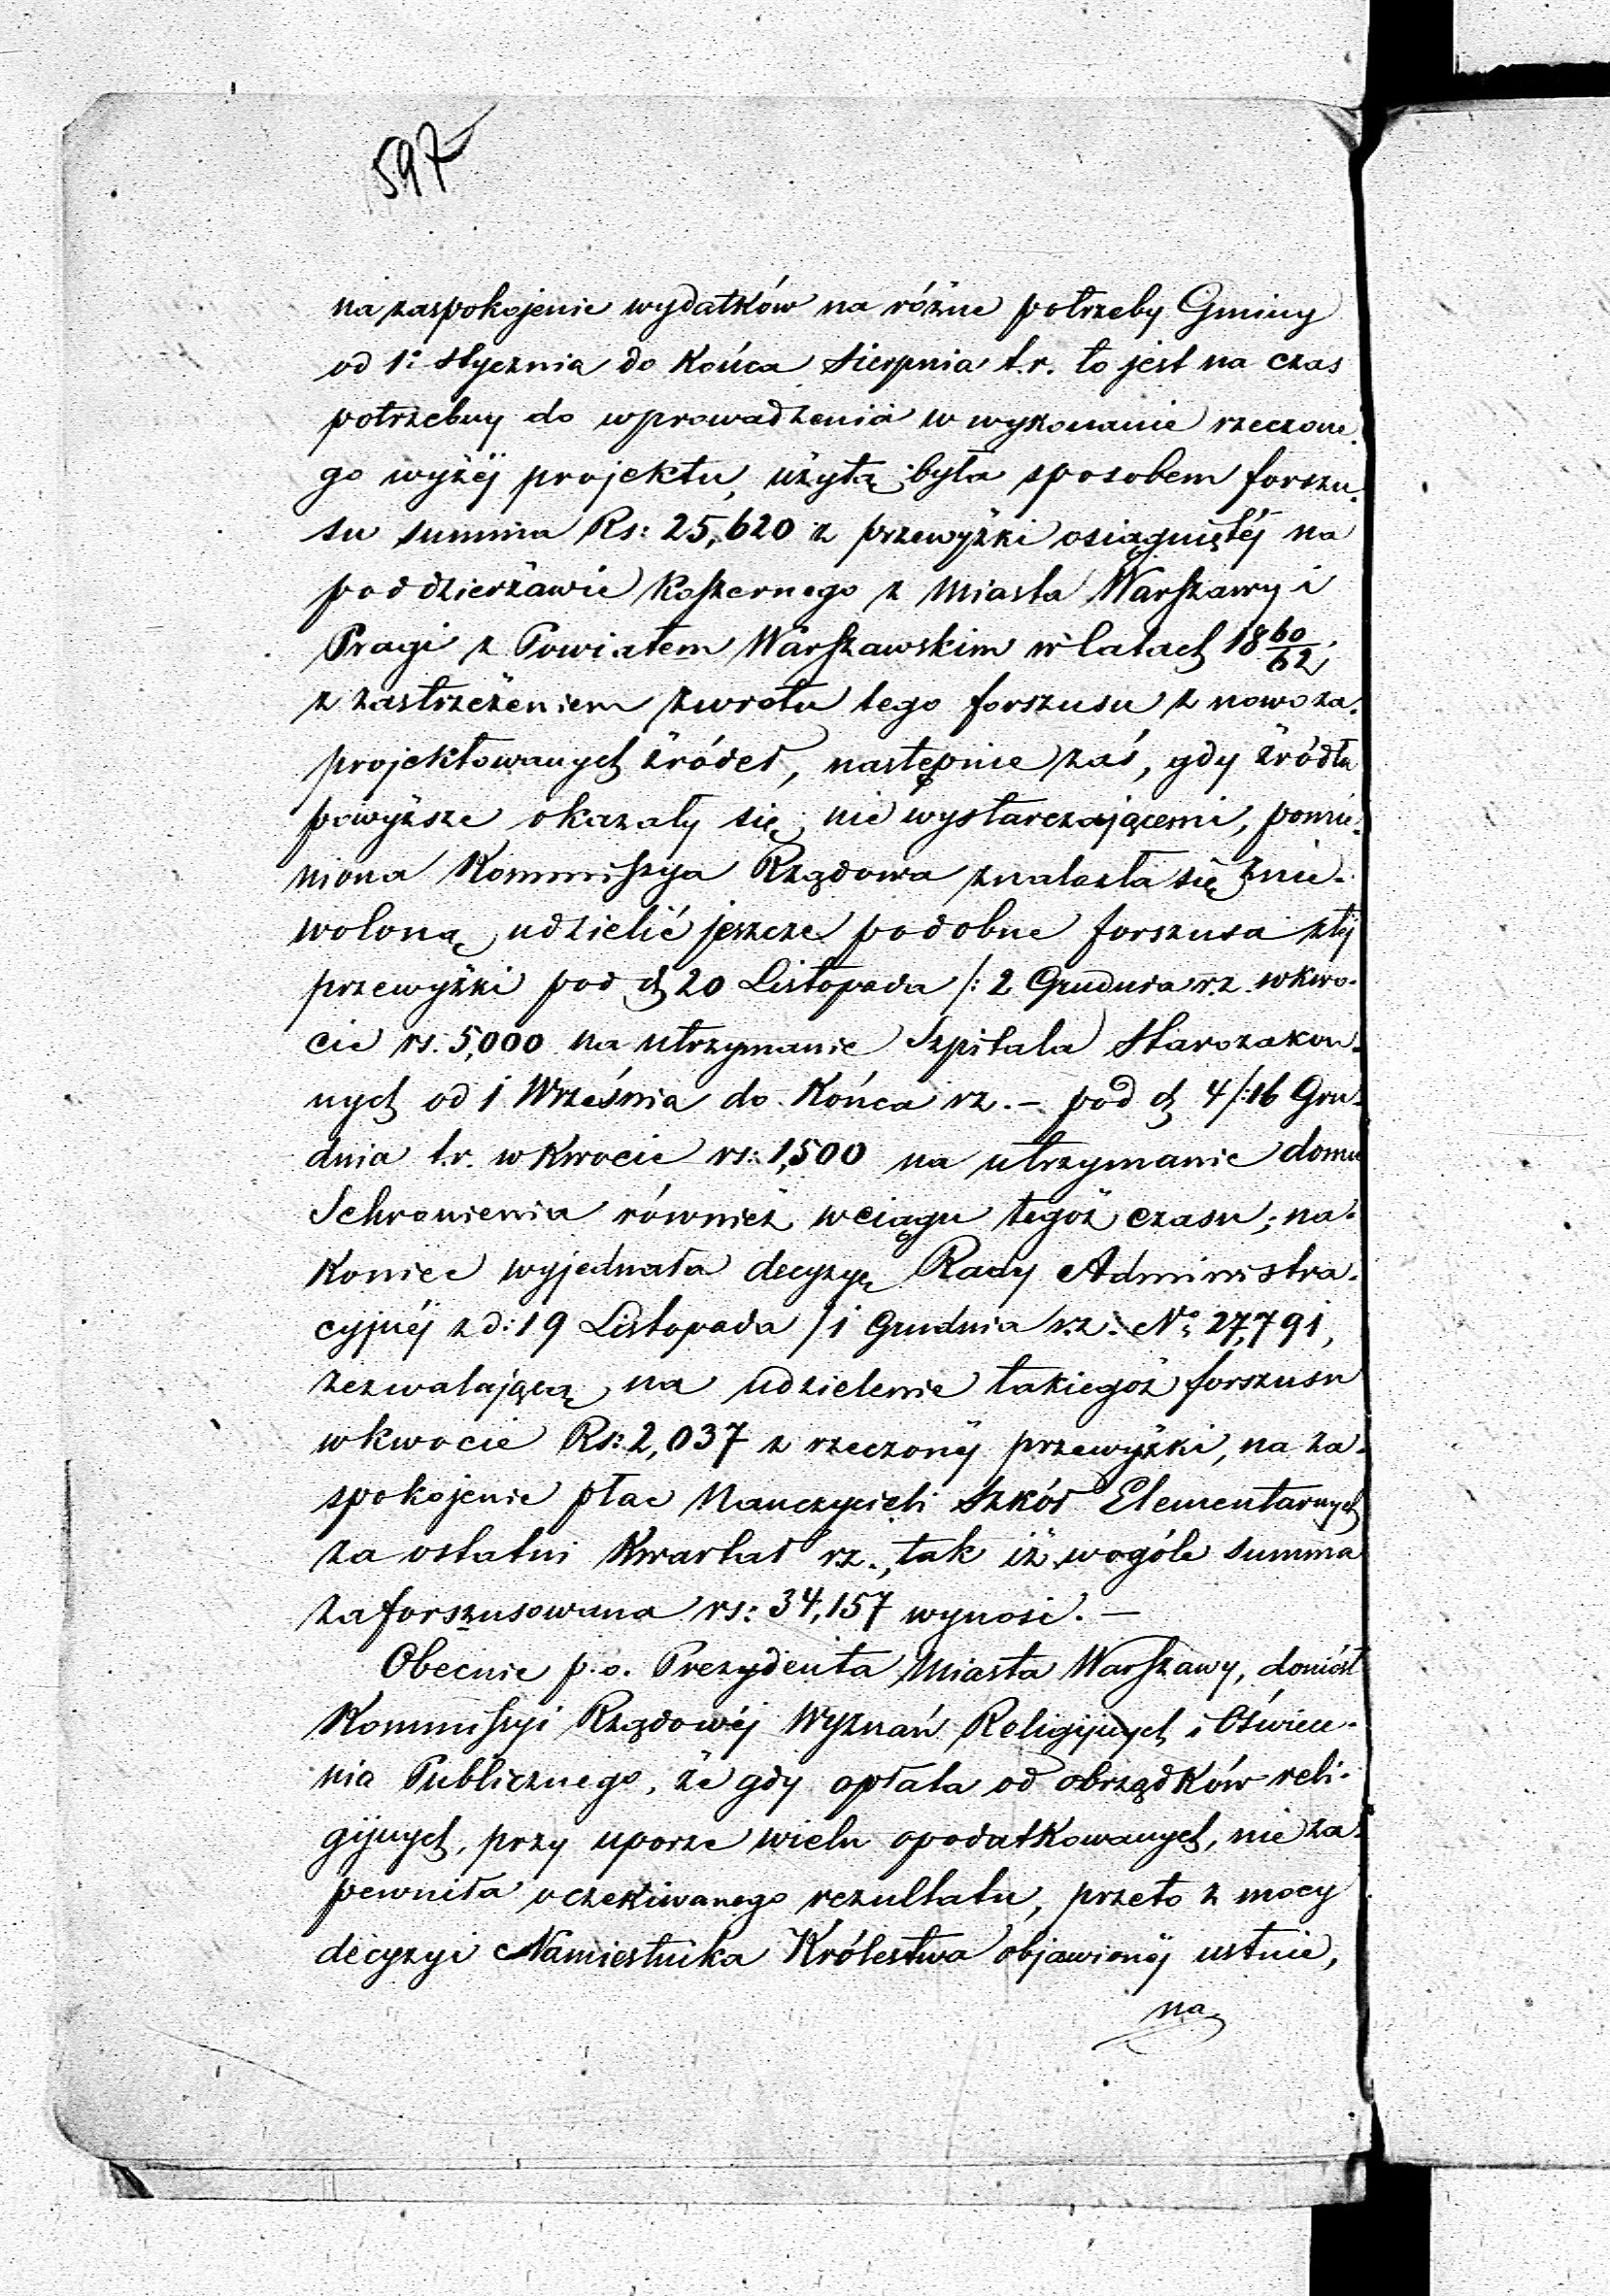 597
na zaspokojenie wydatków na różne potrzeby Gminy
od 1º Stycznia do Końca Sierpnia t.r. to jest na czas
potrzebny do wprowadzenia w wykonanie rzeczone-
go wyżéj projektu, użytą była sposobem forszu-
su summa Rs: 25,620 z przewyżki osiągniętéj na
poddzierżawie Koszernego z Miasta Warszawy i
Pragi z Powiatem Warszawskim w latach 18 60/62,
z zastrzeżeniem zwrotu tego forszusu z nowo za-
projektowanych źródeł, następnie zaś, gdy źródła
powyższe okazały się nie wystarczającemi, pomie-
niona Kommissya Rządowa znalazła się znie-
woloną udzielić jeszcze podobne forszusa z téj
przewyżki pod d 20 Listopada /: 2 Grudnia r.z. w kwo-
cie rs. 5,000 na utrzymanie Szpitala Starozakon-
nych od 1 Września do Końca rz. – pod d 4/:16 Gru-
dnia t.r. w Kwocie rs: 1,500 na utrzymanie domu
Schronienia również w ciągu tegoż czasu; na-
koniec wyjednała decyzyę Rady Administra-
cyjnéj z d: 19 Listopada / 1 Grudnia r.z. Nº 27,791,
zezwalającą na udzielenie takiegoż forszusu
w kwocie Rs: 2,037 z rzeczonéj przewyżki, na za-
spokojenie płac Nauczycieli Szkół Elementarnych
za ostatni Kwartał rz., tak iż wogóle summa
zaforszusowana rs: 34,157 wynosi. –
Obecnie p.o. Prezydenta Miasta Warszawy, doniósł
Kommissyi Rządowéj Wyznań Religijnych i Oświece-
nia Publicznego, że gdy opłata od obrządków reli-
gijnych, przy uporze wielu opodatkowanych, nie za-
pewniła oczekiwanego rezultatu, przeto z mocy
decyzyi Namiestnika Królestwa objawionéj ustnie,
na